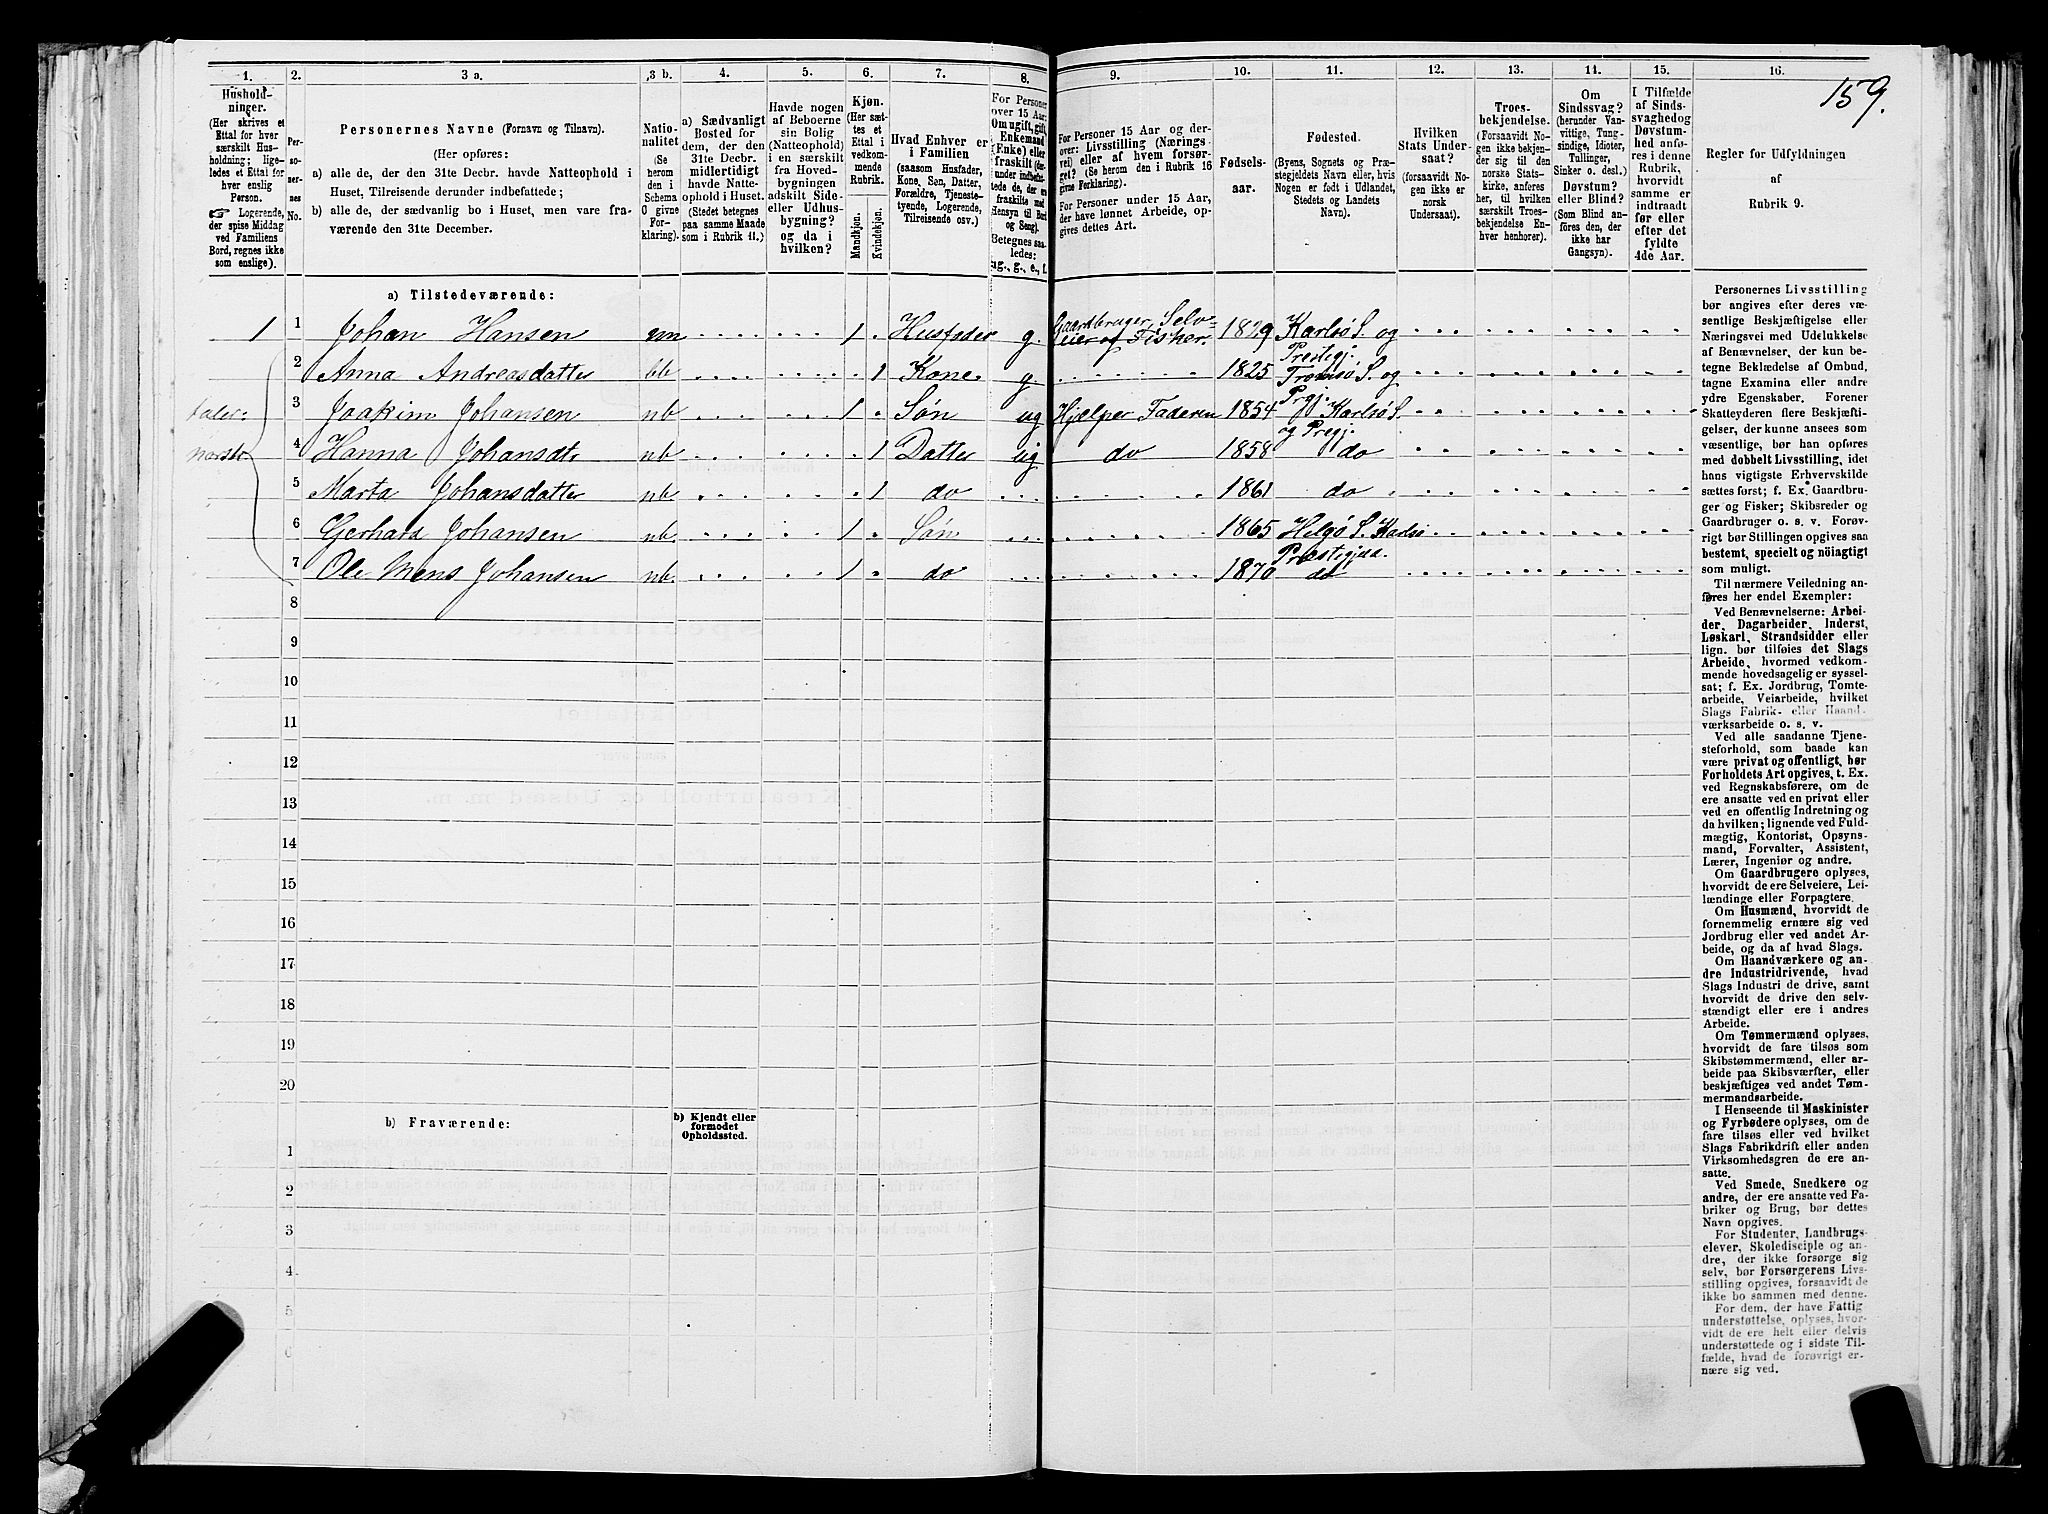 159.
1. 2. 3 a. 3 b. 4. 5. 6. 7. 8. 9. 10. 11. 12. 13. 14. 15. 16.
Hushold-
ninger.
(Her skrives et
Ettal for hver
særskilt Hus-
holdning; lige-
ledes et Ettal for
hver enslig
Person.
☞ Logerende,
der spise Middag
ved Familiens
Bord, regnes ikke
som enslige).
Per-
so-
ner-
nes
No.
Personernes Navne (Fornavn og Tilnavn).
(Her opføres:
a) alle de, der den 31te Decbr. havde Natteophold i
Huset, Tilreisende derunder indbefattede;
b) alle de, der sædvanlig bo i Huset, men vare fra-
værende den 31te December.
Natio-
nalitet
(Se
herom
den i
Schema
O givne
For-
klaring).
a) Sædvanligt
Bosted for
dem, der den
31te Decbr.
midlertidigt
havde Natte-
ophold i Huset.
(Stedet betegnes
paa samme Maade
som i Rubrik 11.)
Havde nogen
af Beboerne
sin Bolig
(Natteophold)
i en særskilt
fra Hoved-
bygningen
adskilt Side-
eller Udhus-
bygning?
og da i
hvilken?
Kjøn.
(Her sæt-
tes et
Ettal i
vedkom-
mende
Rubrik.
Mandkjøn.
Kvindekjøn.
Hvad Enhver er
i Familien
(saasom Husfader,
Kone, Søn, Datter,
Forældre, Tjeneste-
tyende, Logerende,
Tilreisende osv.)
For Personer
over 15 Aar:
Om ugift, gift,
Enkemand
(Enke) eller
fraskilt (der-
under indbefat-
tede de, der ere
fraskilte med
Hensyn til Bord
og Seng).
Betegnes saa-
ledes:
ug., g., e., f.
For Personer 15 Aar og der-
over: Livsstilling (Nærings-
vei) eller af hvem forsør-
get? (Se herom den i Rubrik 16
givne Forklaring).
For Personer under 15 Aar,
der have lønnet Arbeide, op-
gives dettes Art.
Fødsels-
aar.
Fødested.
(Byens, Sognets og Præ-
stegjeldets Navn eller, hvis
Nogen er født i Udlandet,
Stedets og Landets
Navn).
Hvilken
Stats Under-
saat?
(forsaavidt No-
gen ikke er
norsk
Undersaat).
Troes-
bekjendelse.
(Forsaavidt No-
gen ikke bekjen-
der sig til den
norske Stats-
kirke, anføres
her, til hvilken
særskilt Troes-
bekjendelse En-
hver henhorer).
Om
Sindssvag?
(herunder Van-
vittige, Tung-
sindige, Idioter,
Tullinger,
Sinker o. desl.)
Døvstum?
eller Blind?
(Som Blind an-
føres den, der
ikke har
Gangsyn).
I Tilfælde
af Sinds-
svaghed og
Døvstum-
hed anfø-
res i denne
Rubrik,
hvorvidt
samme er
indtraadt
før eller
efter det
fyldte
4de Aar.
Regler for Udfyldningen
af
Rubrik 9.
a) Tilstedeværende:
1 1 Johan Hansen nm 1 Husfader g. Gaardbruger, Selv-
eier og Fisker. 1829 Karlsø S. og
Prestegj.
2 Anna Andreasdatter bb 1 Kone g 1825 Tromsø S. og
Prgj.
taler 3 Joakim Johansen nb 1 Søn ug Hjelper Faderen 1854 Karlsø S.
og Pregj.
norsk 4 Hanna Johansdtr nb 1 Datter ug do 1858 do
5 Marta Johansdatter nb 1 do 1861 do
6 Gerhard Johansen nb 1 Søn 1865 Helgø S. Karlsø
Præstegjeld.
7 Ole Mens Johansen nb 1 do 1870 do
8
9
10
11
12
13
14
15
16
17
18
19
20
b) Fraværende:
b) Kjendt eller
formodet
Opholdssted.
1
2
3
4
5
6
Personernes Livsstilling
bør angives efter deres væ-
sentlige Beskjæftigelse eller
Næringsvei med Udelukkelse
af Benævnelser, der kun be-
tegne Beklædelse af Ombud,
tagne Examina eller andre
ydre Egenskaber. Forener
Skatteyderen flere Beskjæfti-
gelser, der kunne ansees som
væsentlige, bør han opføres
med dobbelt Livsstilling, idet
hans vigtigste Erhvervskilde
sættes først; f. Ex. Gaardbru-
ger og Fisker; Skibsreder og
Gaardbruger o. s. v. Forøv-
rigt bør Stillingen opgives saa
bestemt, specielt og nöiagtigt
som muligt.
Til nærmere Veiledning an-
føres her endel Exempler:
Ved Benævnelserne: Arbei-
der, Dagarbeider, Inderst,
Løskarl, Strandsidder eller
lign. bør tilføies det Slags
Arbeide, hvormed vedkom-
mende hovedsagelig er syssel-
sat; f. Ex. Jordbrug, Tomte-
arbeide, Veiarbeide, hvilket
Slags Fabrik- eller Haand-
værksarbeide o. s. v.
Ved alle saadanne Tjene-
steforhold, som baade kan
være privat og offentligt, bør
Forholdets Art opgives, t. Ex.
ved Regnskabsførere, om de
ere ansatte ved en privat eller
ved en offentlig Indretning og
da hvilken; lignende ved Fuld-
mægtig, Kontorist, Opsyns-
mand, Forvalter, Assistent,
Lærer, Ingeniør og andre.
Om Gaardbrugere oplyses,
hvorvidt de ere Selveiere, Lei-
lændinge eller Forpagtere.
Om Husmænd, hvorvidt de
fornemmelig ernære sig ved
Jordbrug eller ved andet Ar-
beide, og da af hvad Slags.
Om Haandværkere og an-
dre Industridrivende, hvad
Slags Industri de drive, samt
hvorvidt de drive den selv-
stændigt eller ere i andres
Arbeide.
Om Tømmermænd oplyses,
hvorvidt de fare tilsøs som
Skibstømmermænd, eller ar-
beide paa Skibsværfter, eller
beskjæftiges ved andet Tøm-
mermandsarbeide.
I Henseende til Maskinister
og Fyrbødere oplyses, om de
fare tilsøs eller ved hvilket
Slags Fabrikdrift eller anden
Virksomhedsgren de ere an-
satte.
Ved Smede, Snedkere og
andre, der ere ansatte ved Fa-
briker og Brug, bør dettes
Navn opgives.
For Studenter, Landbrugs-
elever, Skoledisciple og an-
dre, der ikke forsørge sig
selv, bør Forsørgerens Livs-
stilling opgives, forsaavidt de
ikke bo sammen med denne.
For dem, der have Fattig-
understøttelse, oplyses, hvor-
vidt de ere helt eller delvis
understøttede og i sidste Til-
fælde, hvad de forøvrigt er-
nære sig ved.